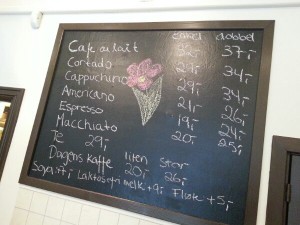 enkel dobbel
Cafe au lait 32,- 37,-
Cortado 29,- 34,-
Cappuchino 29,- 34,-
Americano 21,- 26,-
Espresso 19,- 24,-
Macchiato 20,- 25,-
Te 29,-
Dagens kaffe liten 20,- stor 26,-
Soya Laktosefri melk +9,- Fløte +5,-